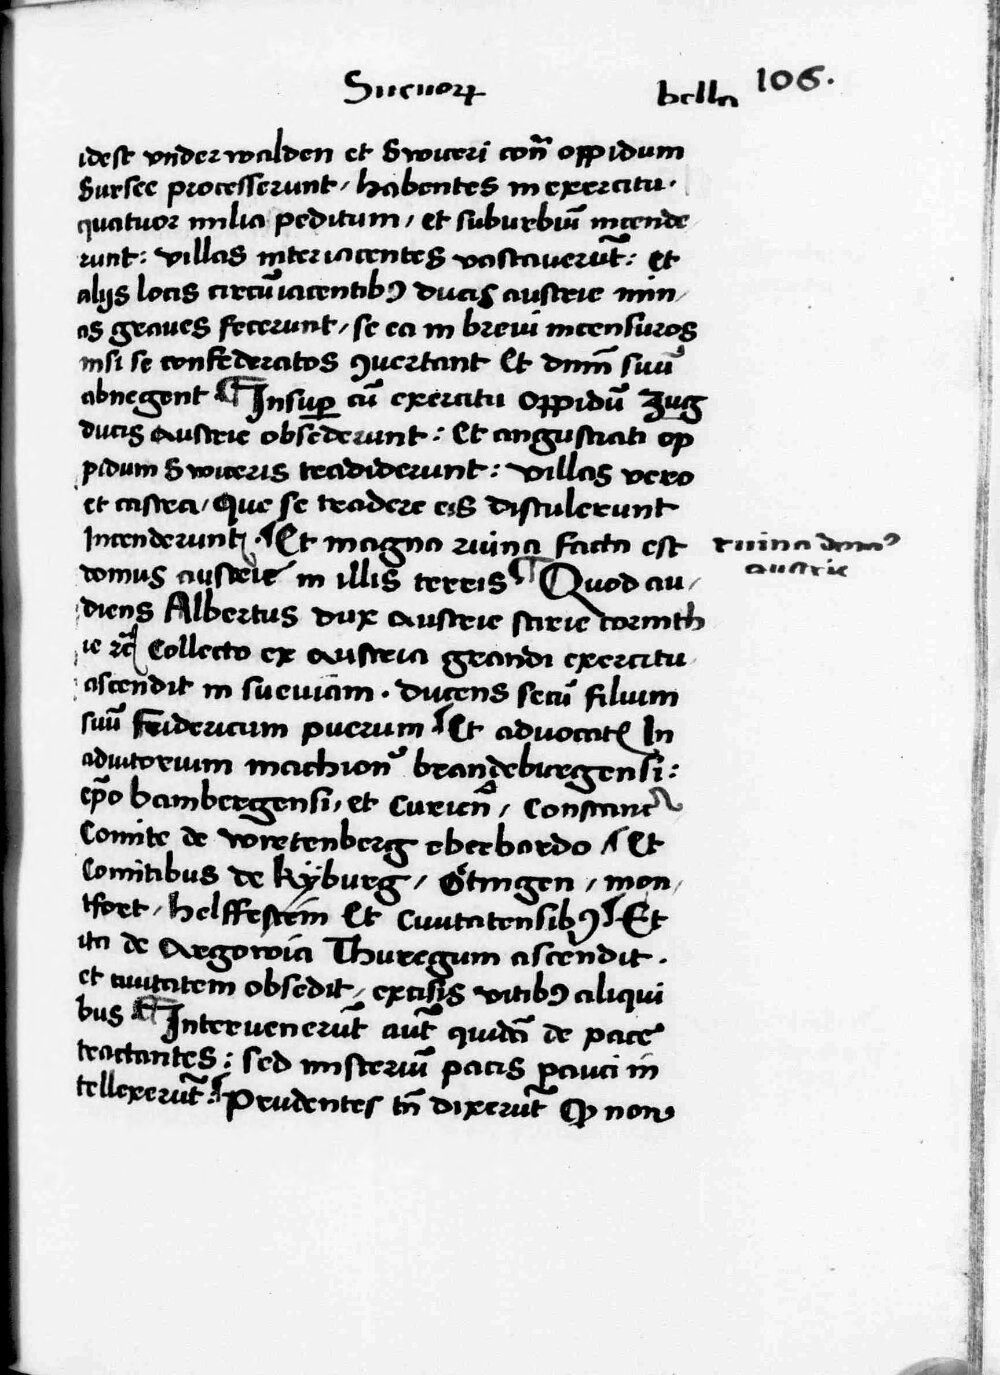 Sueuoꝝ bella 106.
idest vnderwalden et Swiceri con̄ oppidum
Sursee processerunt / habentes in exercitu ·
quatuor milia peditum / et suburbiū incende
runt : villas interiacentes vastauerūt : et
alijs locis circūiacentibꝯ ducis austrie min /
as graues fecerunt / se ea in breui incensuros
nisi se confederatos ꝯuertant Et dnm̄ suū
abnegent ¶ Insuꝑ cū exercitu oppidū Zug
ducis Austrie obsederunt : Et angustiati op
pidum Swiceris tradiderunt : villas vero
et castra / Que se tradere eis distulerunt
Incenderunt · Et magna ruina facta est
domus austrie in illis terris ¶ Quod au /
diens Albertus dux Austrie stirie corinth
ie ꝛc̄ Collecto ex Austria grandi exercitu
ascendit in sueuiam · ducens secū filium
suū Fridericum puerum Et aduocatꝭ In
adiutorium machionꝰ brandeburgensi :
ep̄o bambergensi / et Curien̄ / Constanc̄
Comite de wirtenberg eberhardo / Et
Comitibus de kÿburg / Ötingen / mon /
tfort / helffestein Et Ciuitatensibꝯ · Et
ita de Argowia Thuregum ascendit ·
et ciuitatem obsedit / excisis vitibꝯ aliqui
bus ¶ Interuenerūt aūt quidā de pace
tractantes : sed misteriū pacis pauci in
tellexerūt · Prudentes tn̄ dixerūt Ꝙ non
ruina domꝰ
austrie